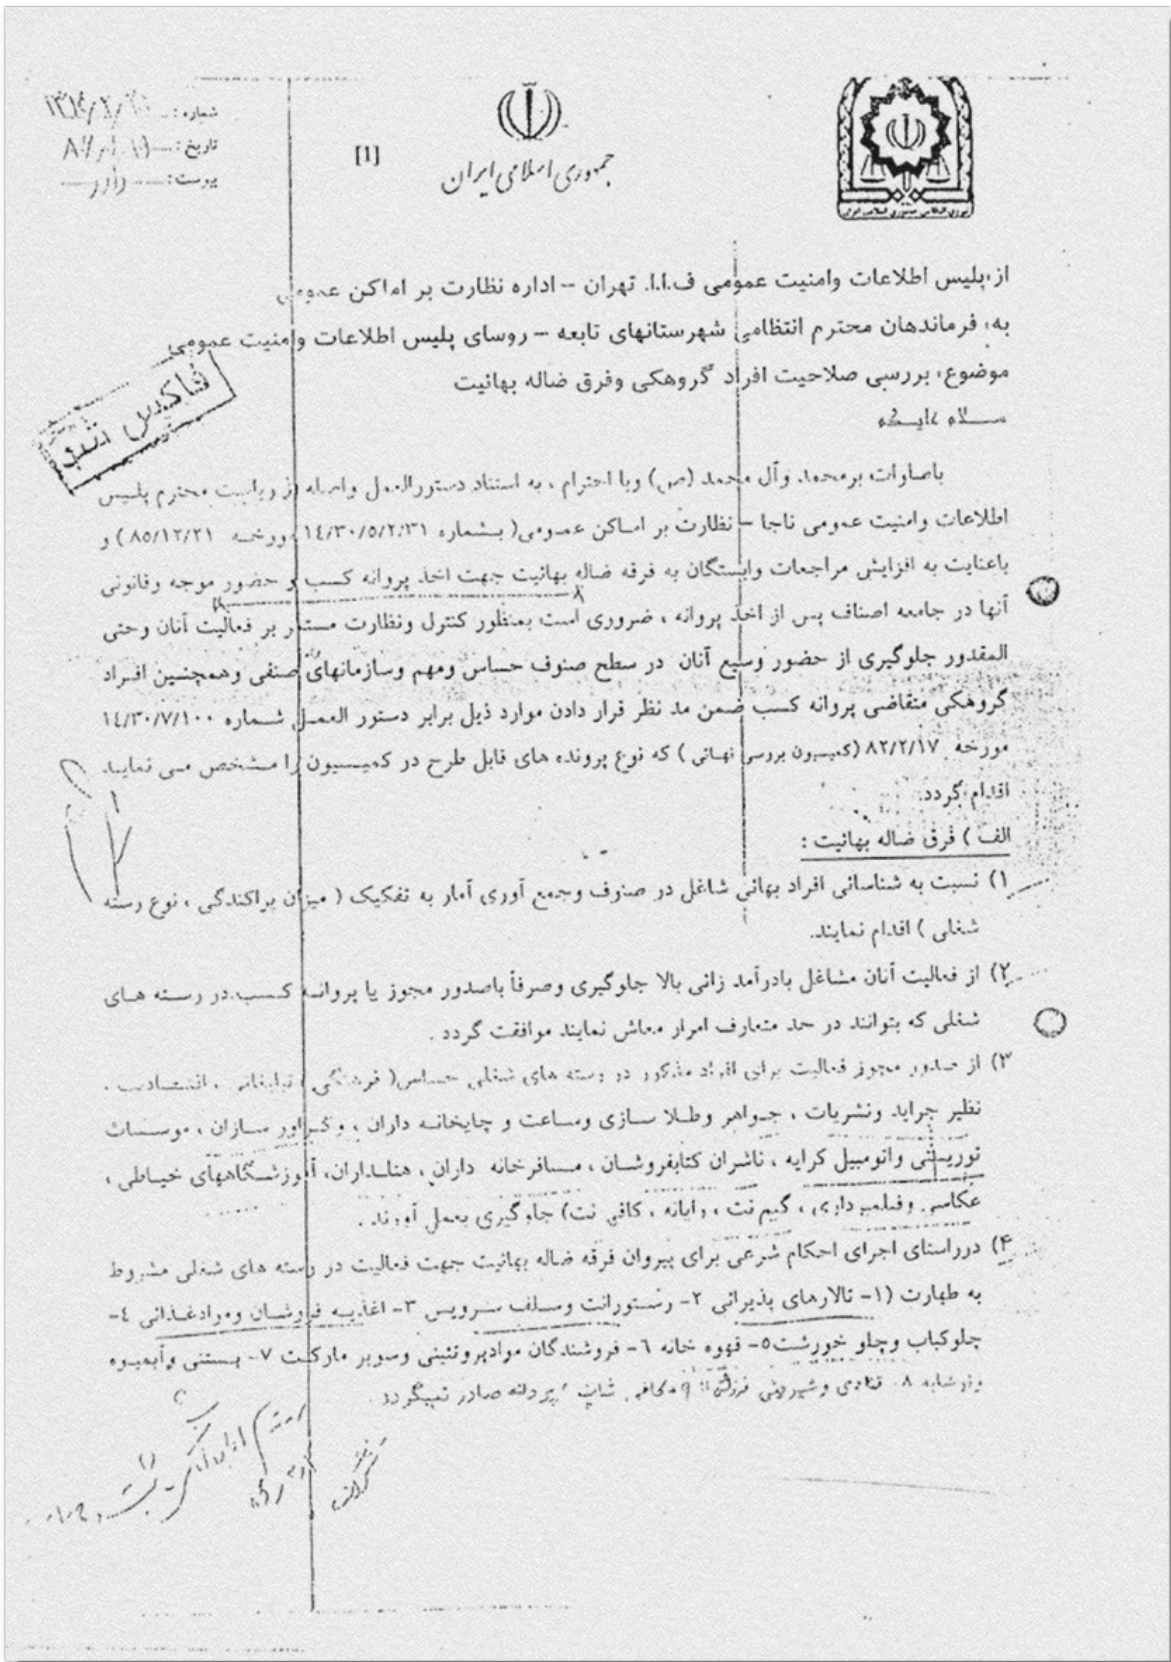 شماره:
تاریخ:
پیوست:
[1]
جمهوری اسلامی ایران
نیروی انتظامی جمهوری اسلامی ایران
از: پلیس اطلاعات وامنیت عمومی ف.ا.ا. تهران – اداره نظارت بر اماکن عمومی
به: فرماندهان محترم انتظامی شهرستانهای تابعه – روسای پلیس اطلاعات وامنیت عمومی
موضوع: بررسی صلاحیت افراد گروهکی وفرق ضاله بهائیت
فاکس شد
سلام علیکم
باصلوات برمحمد وآل محمد (ص) وبا احترام ، به استناد دستورالعمل واصله از ریاست محترم پلیس
اطلاعات وامنیت عمومی ناجا – نظارت بر اماکن عمومی( بشماره ١٤/٣٠/٥/٢/٣١ مورخه ٨٥/١٢/٢١ ) و
باعنایت به افزایش مراجعات وابستگان به فرقه ضاله بهائیت جهت اخذ پروانه کسب و حضور موجه وقانونی
آنها در جامعه اصناف پس از اخذ پروانه ، ضروری است بمنظور کنترل ونظارت مستمر بر فعالیت آنان وحتی
المقدور جلوگیری از حضور وسیع آنان در سطح صنوف حساس ومهم وسازمانهای صنفی وهمچنین افراد
گروهکی متقاضی پروانه کسب ضمن مد نظر قرار دادن موارد ذیل برابر دستور العمل شماره ١٤/٣٠/٧/١٠٠
مورخه ٨٢/٢/١٧ (کمیسیون بررسی نهائی ) که نوع پرونده های قابل طرح در کمیسیون را مشخص می نماید
اقدام گردد.
الف ) فرق ضاله بهائیت :
١) نسبت به شناسائی افراد بهائی شاغل در صنوف وجمع آوری آمار به تفکیک ( میزان پراکندگی ، نوع رسته
شغلی ) اقدام نمایند.
٢) از فعالیت آنان مشاغل بادرآمد زائی بالا جلوگیری وصرفاً باصدور مجوز یا پروانه کسب در رسته های
شغلی که بتوانند در حد متعارف امرار معاش نمایند موافقت گردد .
٣) از صدور مجوز فعالیت برای افراد مذکور در رسته های شغلی حساس( فرهنگی ، تبلیغاتی ، اقتصادی ،
نظیر جراید ونشریات ، جواهر وطلا سازی وساعت و چاپخانه داران ، وگراور سازان ، موسسات
توریستی واتومبیل کرایه ، ناشران کتابفروشان ، مسافرخانه داران ، هتلداران، آموزشگاههای خیاطی ،
عکاسی وفیلمبرداری ، گیم نت ، رایانه ، کافی نت) جلوگیری بعمل آورند .
۴) درراستای اجرای احکام شرعی برای پیروان فرقه ضاله بهائیت جهت فعالیت در رسته های شغلی مشروط
به طهارت (١- تالارهای پذیرائی ٢- رستورانت وسلف سرویس ٣- اغذیه فروشان وموادغذائی ٤-
چلوکباب وچلو خورشت ٥- قهوه خانه ٦- فروشندگان موادپروتئینی وسوپر مارکت ٧- بستنی وآبمیوه
ونوشابه ٨- قنادی و شیرینی فروشی و کافی شاپ ) پروانه صادر نمیگردد .